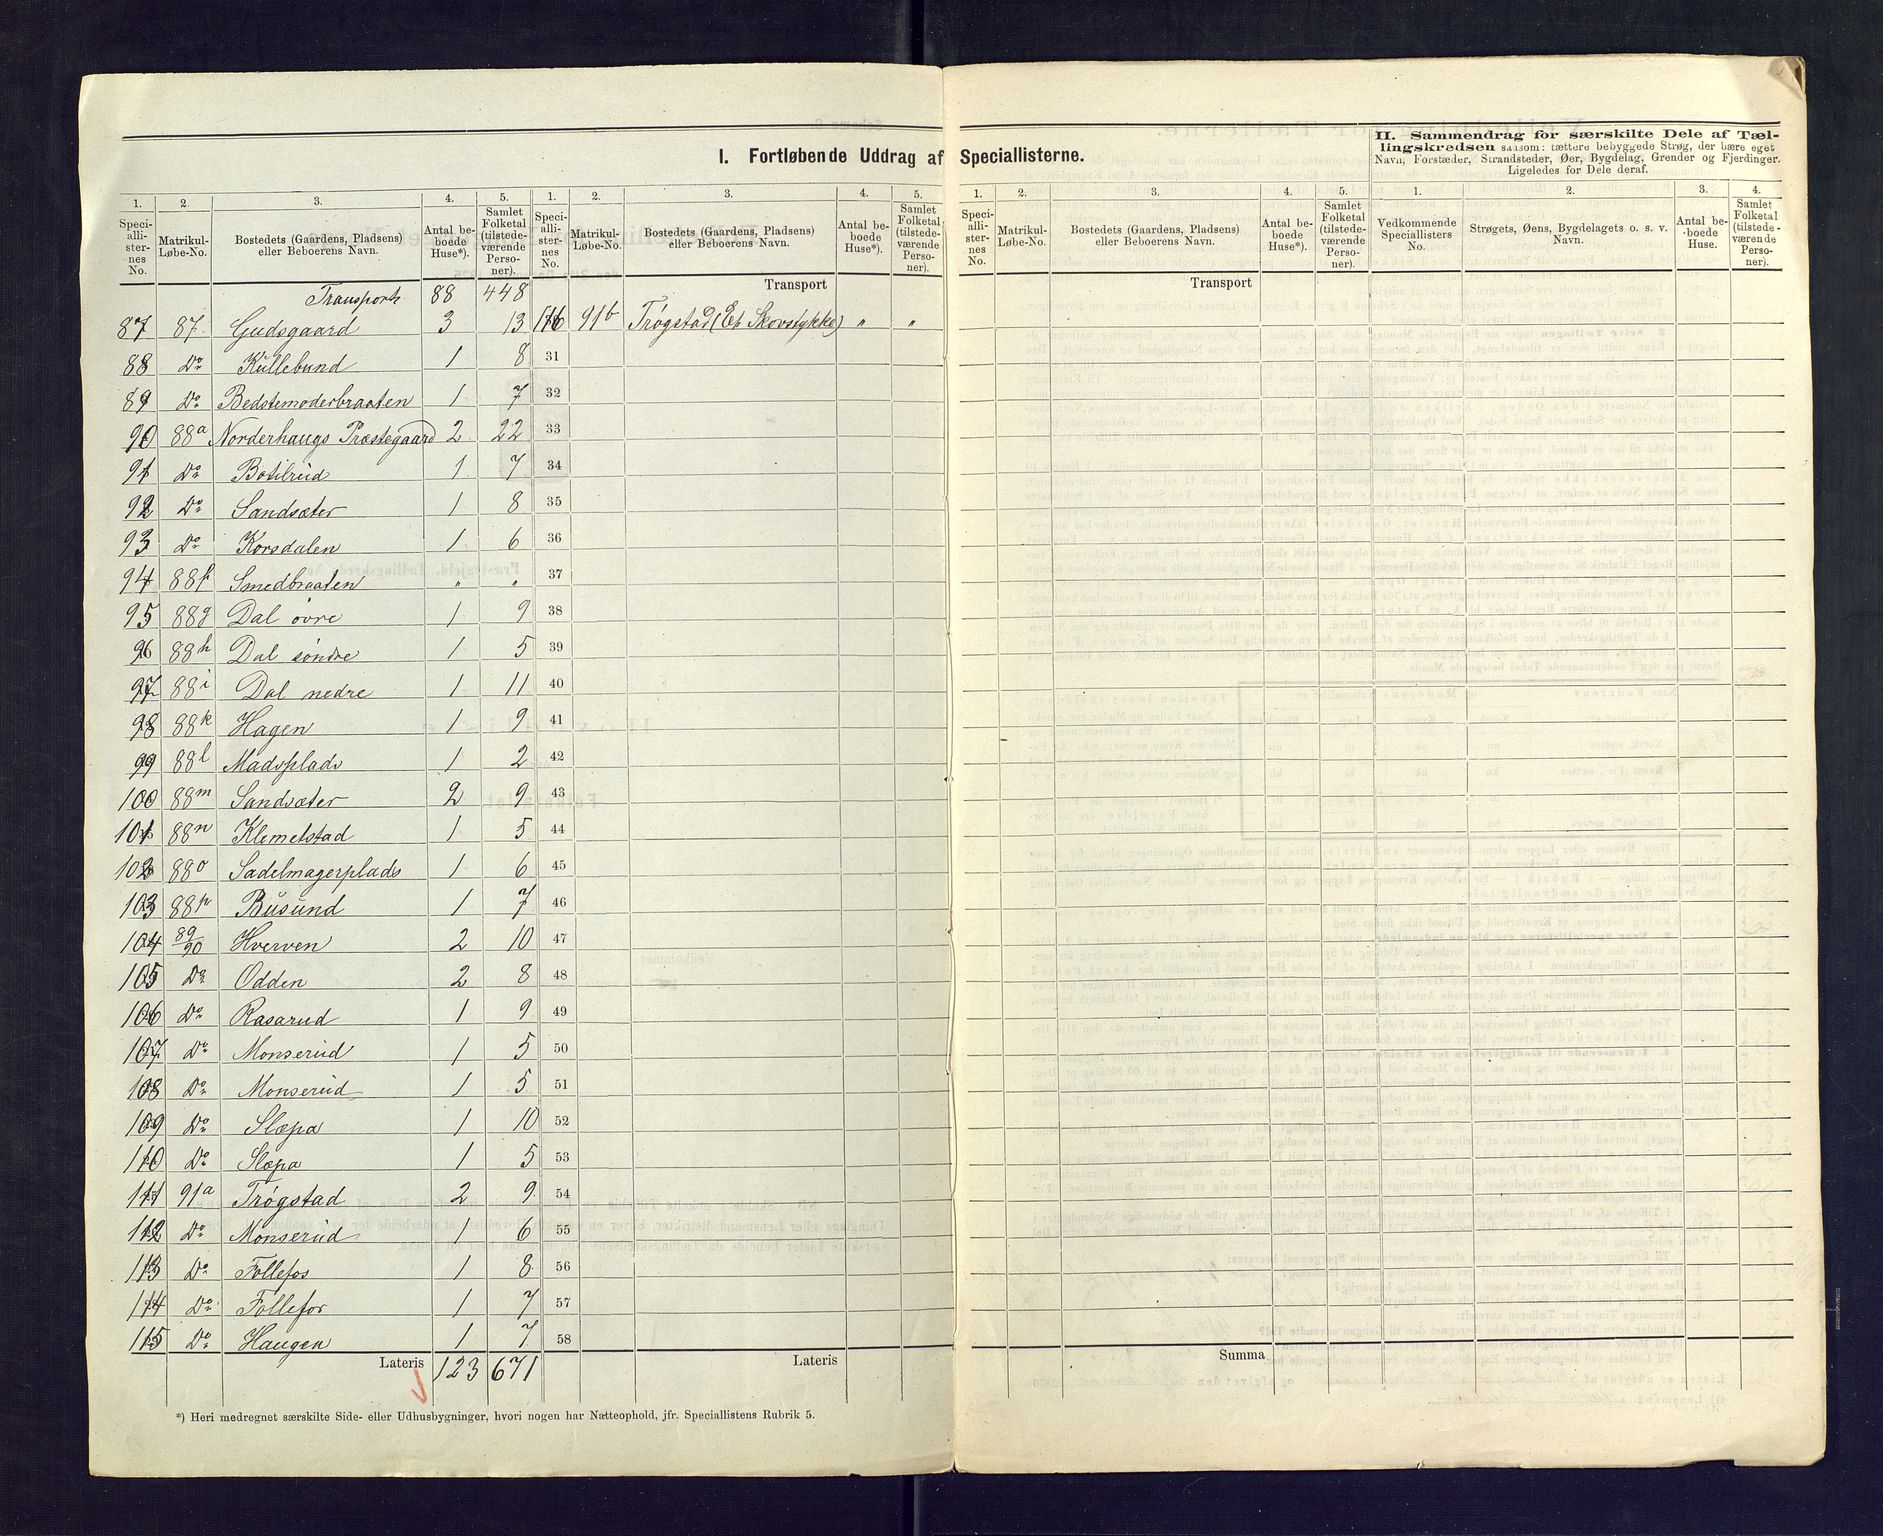 I. Fortløbende Uddrag af Speciallisterne.
II. Sammendrag for særskilte Dele af Tæl-
lingskredsen saasom: tættere bebyggede Strøg, der bære eget
Navn, Forstæder, Strandsteder, Øer, Bygdelag, Grender og Fjerdinger.
Ligeledes for Dele deraf.
1. 2. 3. 4. 5. 1. 2. 3. 4. 5. 1. 2. 3. 4. 5. 1. 2. 3. 4.
Speci-allister-nes No. Matrikul-Løbe-No. Bostedets (Gaardens, Pladsens) eller Beboerens Navn. Antal be-boede Huse*). Samlet Folketal (tilstede-værende Perso-ner).
Speci-allister-nes No. Matrikul-Løbe-No. Bostedets (Gaardens, Pladsens) eller Beboerens Navn. Antal be-boede Huse*). Samlet Folketal (tilstede-værende Perso-ner).
Speci-allister-nes No. Matrikul-Løbe-No. Bostedets (Gaardens, Pladsens) eller Beboerens Navn. Antal be-boede Huse*). Samlet Folketal (tilstede-værende Perso-ner).
Vedkommende Speciallisters No. Strøgets, Øens, Bygdelagets o. s. v. Navn. Antal be-boede Huse. Samlet Folketal (tilstede-værende Perso-ner).
Transport 88 448 Transport Transport
87 87. Gudsgaard 3 13 116 91b Trøgstad (Et Skovstykke) " "
88 Do Kullebund 1 8 31
89 Do Bedstemoderbraaten 1 7 32
90 88a Norderhaugs Præstegaard 2 22 33
91 Do Botilrud 1 7 34
92 Do Sandsæter 1 8 35
93 Do Korsdalen 1 6 36
94 88f Smedbraaten " " 37
95 88g Dal övre 1 9 38
96 88h Dal söndre 1 5 39
97 88i Dal nedre 1 11 40
98 88k Hagen 1 9 41
99 88l Madsplads 1 2 42
100 88m Sandsæter 2 9 43
101 88n Klemetstad 1 5 44
102 88o Sadelmagerplads 1 6 45
103 88p Busund 1 7 46
104 89/90 Hverven 2 10 47
105 Do Odden 2 8 48
106 Do Rasarud 1 9 49
107 Do Monserud 1 5 50
108 Do Monserud 1 5 51
109 Do Slæpa 1 10 52
110 Do Slæpa 1 5 53
111 91a Trøgstad 2 9 54
112 Do Monserud 1 6 55
113 Do Follefos 1 8 56
114 Do Follefos 1 7 57
115 Do Haugen 1 7 58
Lateris 123 671 Lateris Summa
*) Heri medregnet særskilte Side- eller Udhusbygninger, hvori nogen har Natteophold, jfr. Speciallistens Rubrik 5.